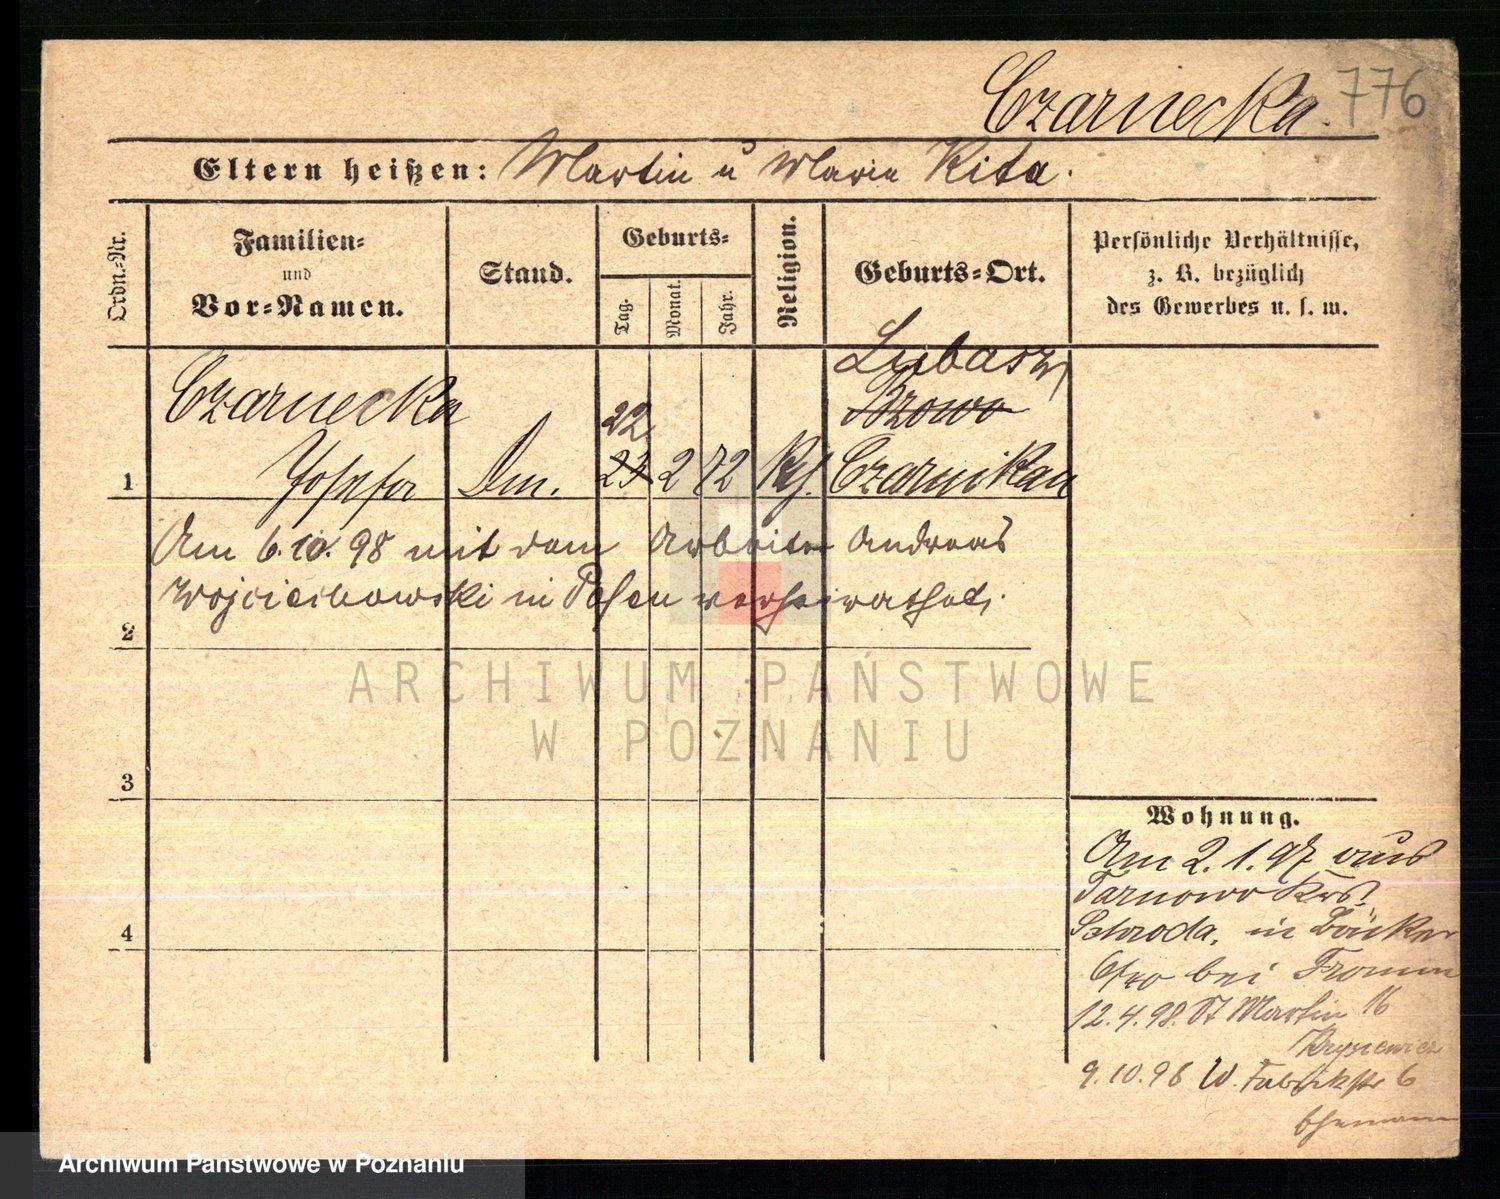 Czarnecka. 776
Eltern heißen: Martin u Marie Rita.
Ordn.-Nr.
Familien-
und
Vor-Namen.
Stand.
Geburts-
Tag.
Monat.
Jahr.
Religion.
Geburts-Ort.
Persönliche Verhältnisse,
z. B. bezüglich
des Gewerbes u. s. w.
Lubasz,
Czarnecka
Brzowo
22
1 Josefa Dm. 23 2 72 Kth. Czarnikau
Am 6.10.98 mit dem Arbeiter Andreas
Wojciechowski in Posen verheirathet.
2
ARCHIWUM PAŃSTWOWE
W POZNANIU
3
4
Wohnung.
Am 2.1.97 aus
Tarnowo Krs.
Schroda, in Bäcker
bei Fromm
12.4.98. St Martin 16
Krysiewicz
9.10.98 W. Fabrikstr 6
Ehemann
Archiwum Państwowe w Poznaniu